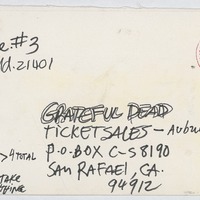 e.#3
d.21401
GRATEFUL DEAD
TICKET SALES - Aubu
P.O. BOX C-S 8190
>4 TOTAL
SAN RAFAEL, CA.
94912
TAKE